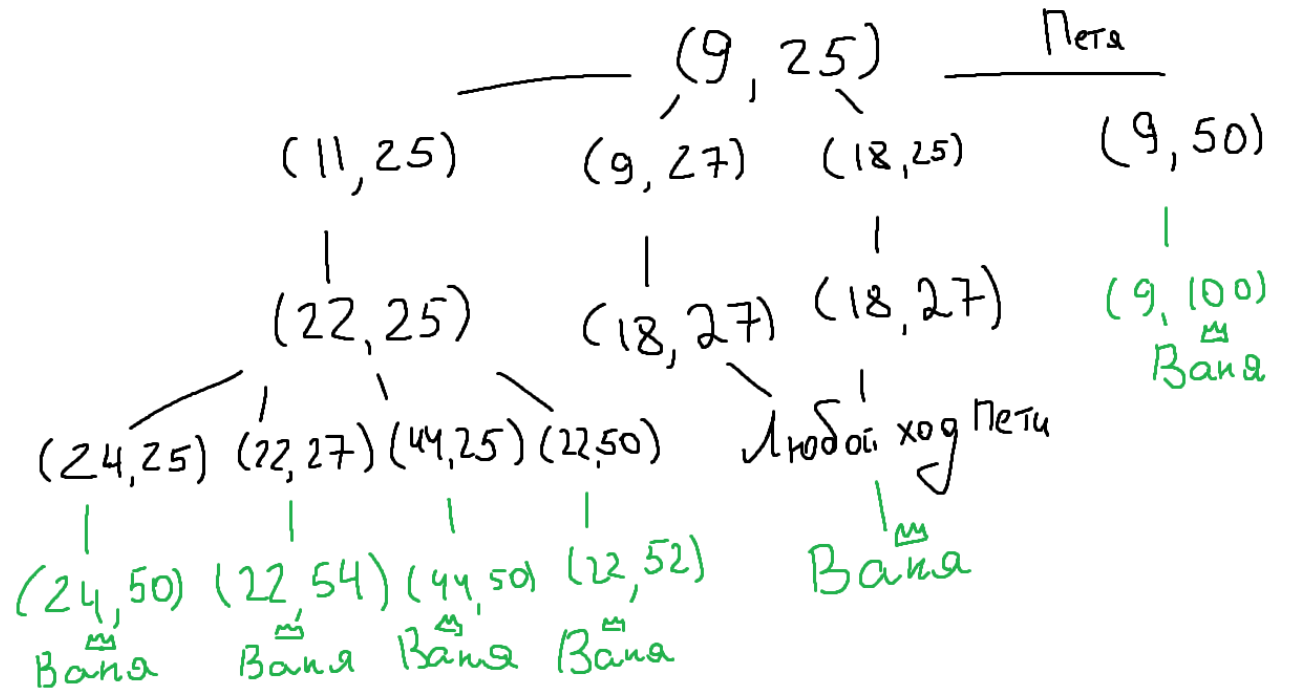 Петя
(9, 25)
(11, 25) (9, 27) (18, 25) (9, 50)
(22, 25) (18, 27) (18, 27) (9, 100)
Ваня
(24, 25) (22, 27) (44, 25) (22, 50) Любой ход Пети
(24, 50) (22, 54) (44, 50) (22, 52) Ваня
Ваня Ваня Ваня Ваня